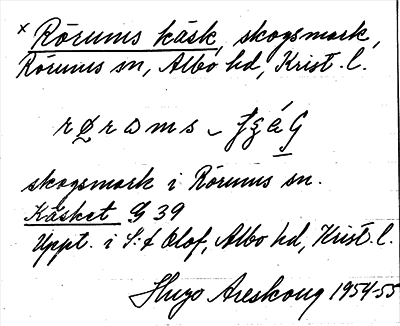 × Rörums käsk, skogsmark,
Rörums sn, Albo hd, Krist. l.
skogsmark i Rörums sn.
Käsket G 39
Uppt. i S:t Olof, Albo hd, Krist. l.
Hugo Areskoug 1954-55